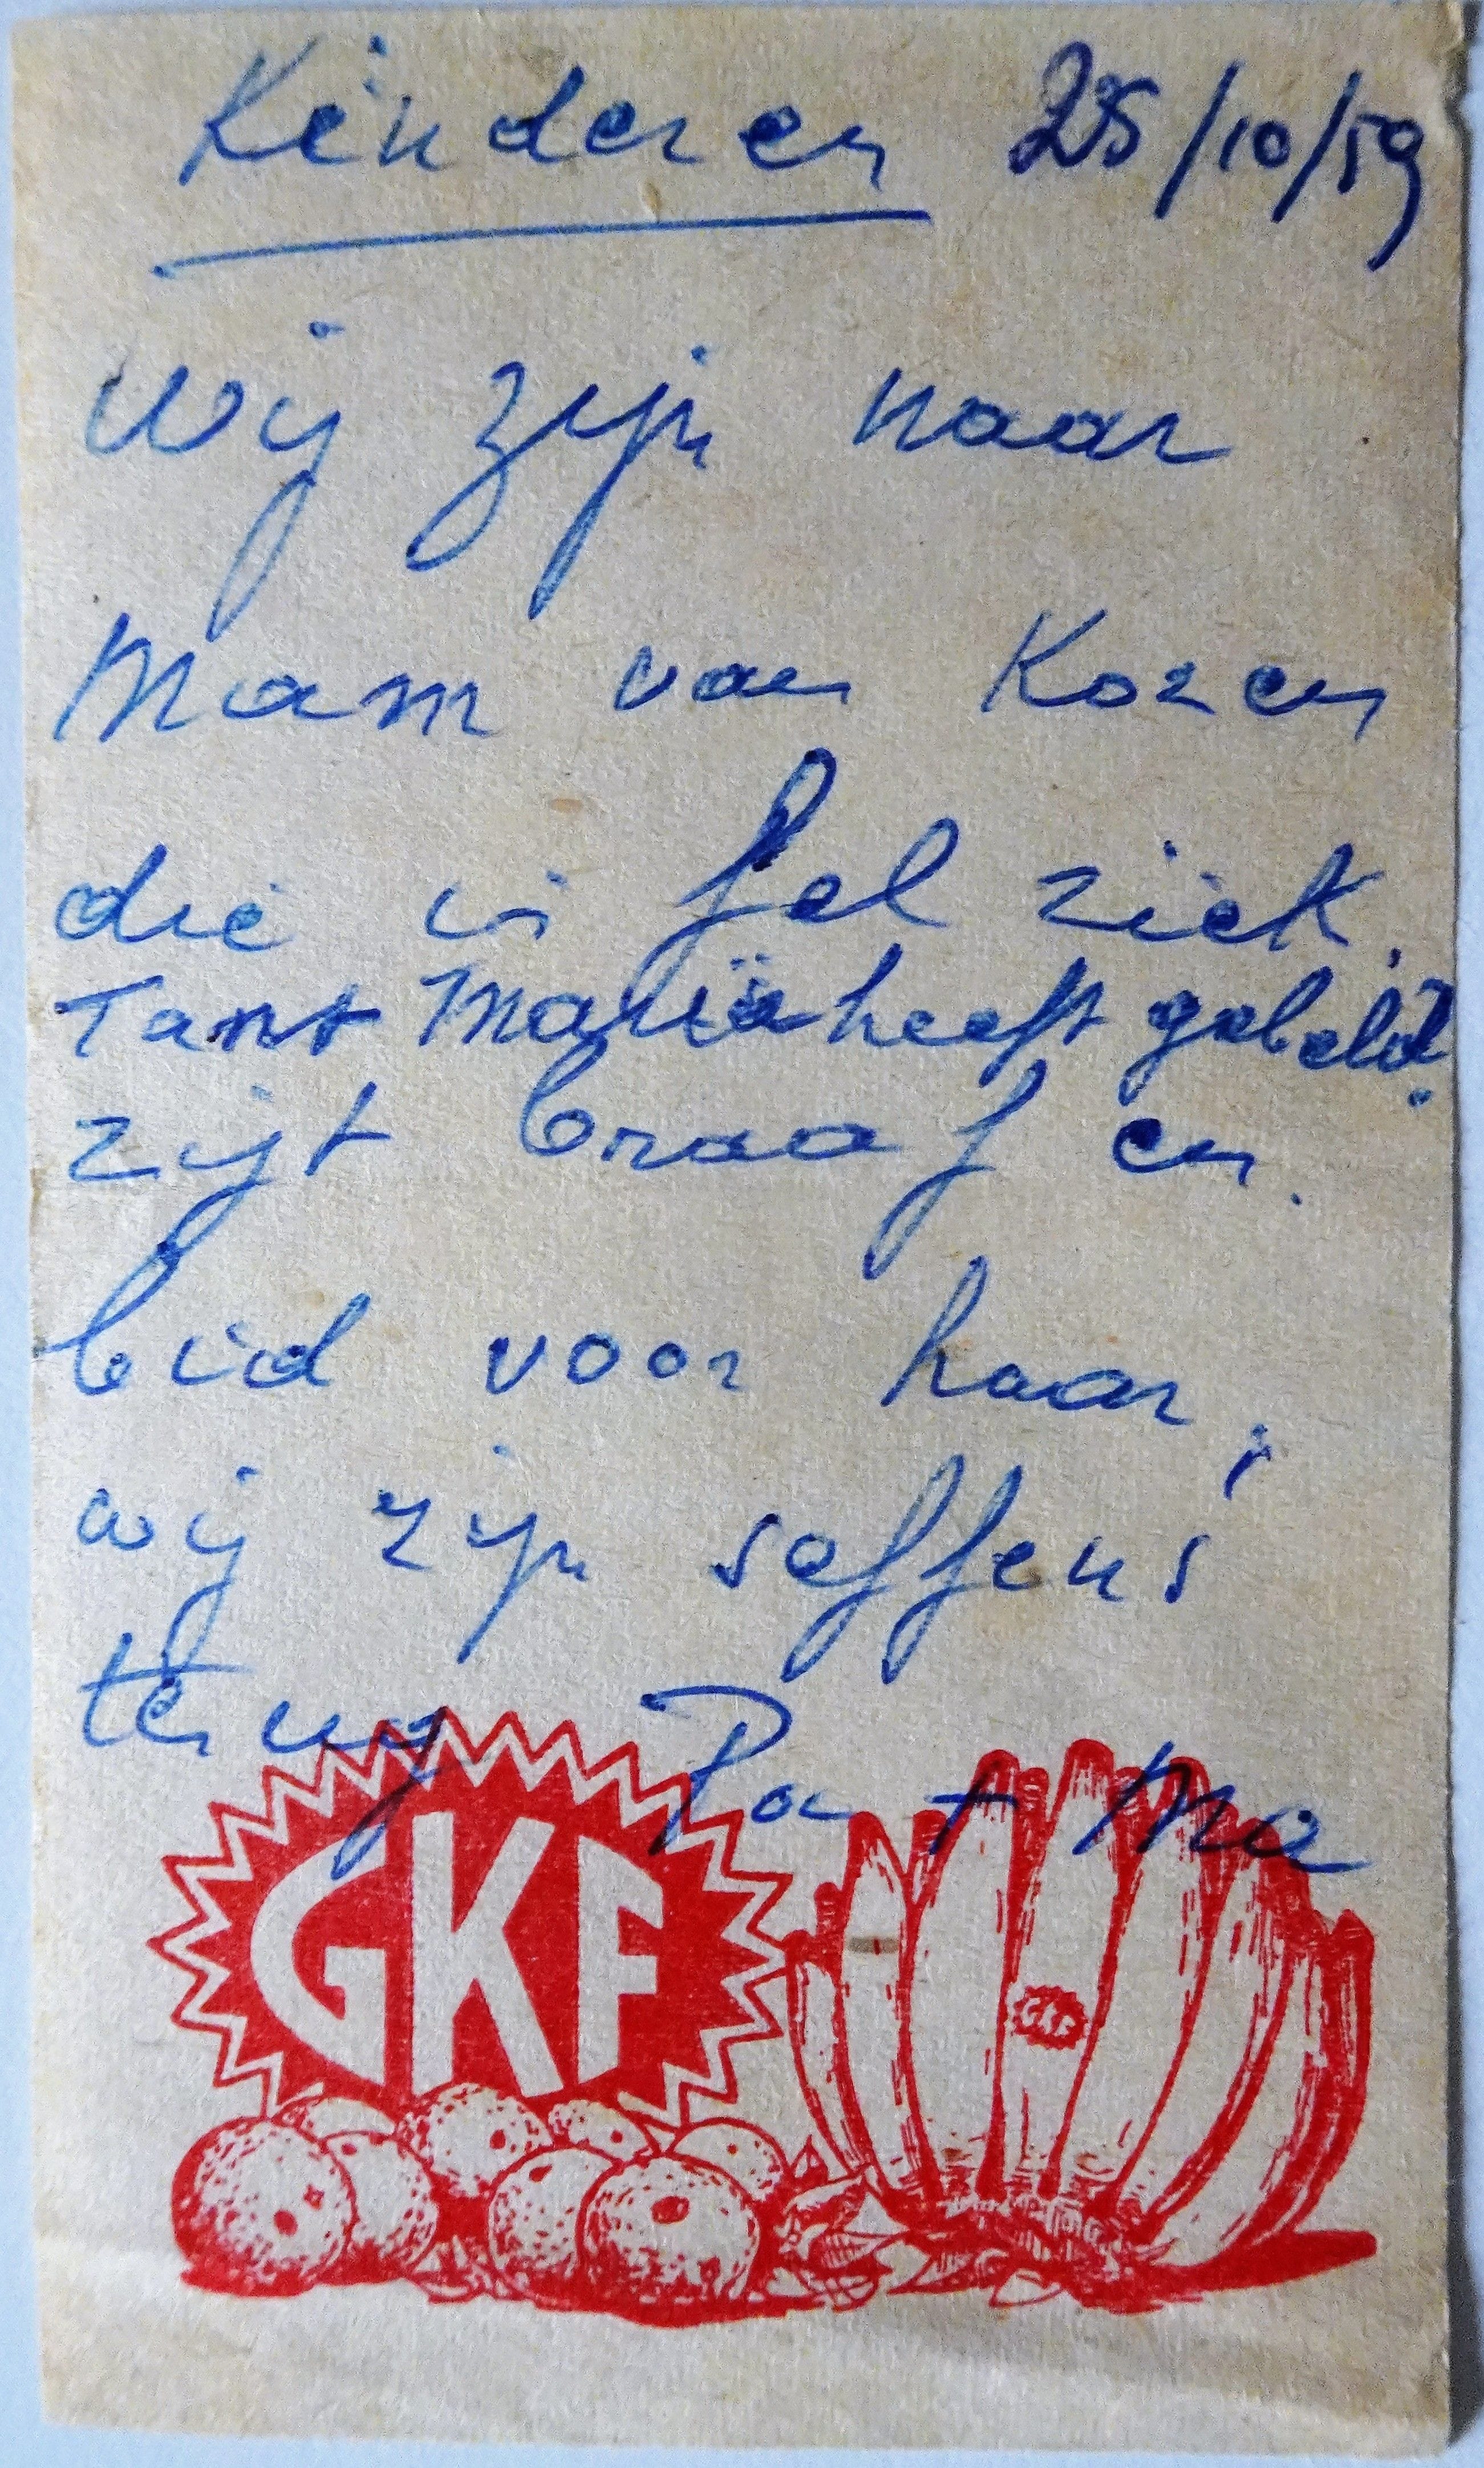 Kinderen 25/10/59
Wij zijn naar
Mam van Kozen
die is fel ziek.
Tant Maria heeft gebeld.
zijt braaf en
bid voor haar,
wij zijn seffens
terug Pa + Ma
GKF
GKF